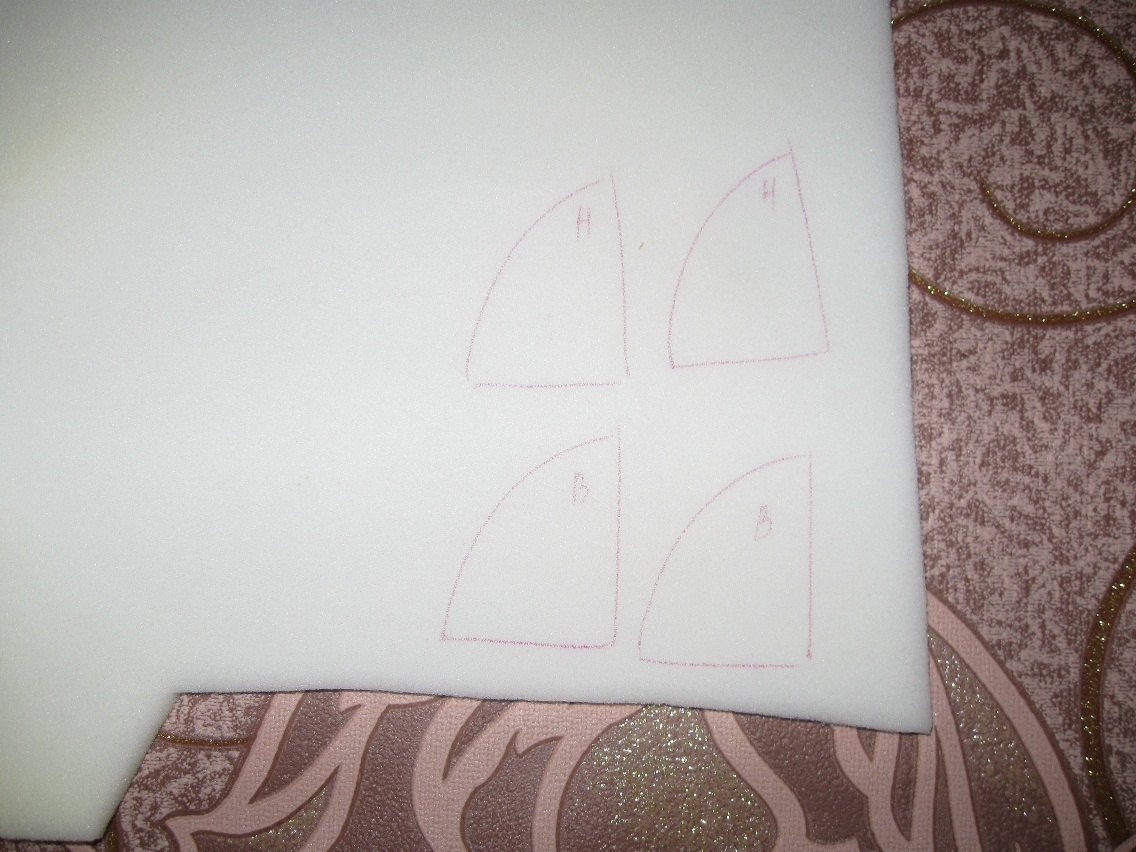 Н Н
В В